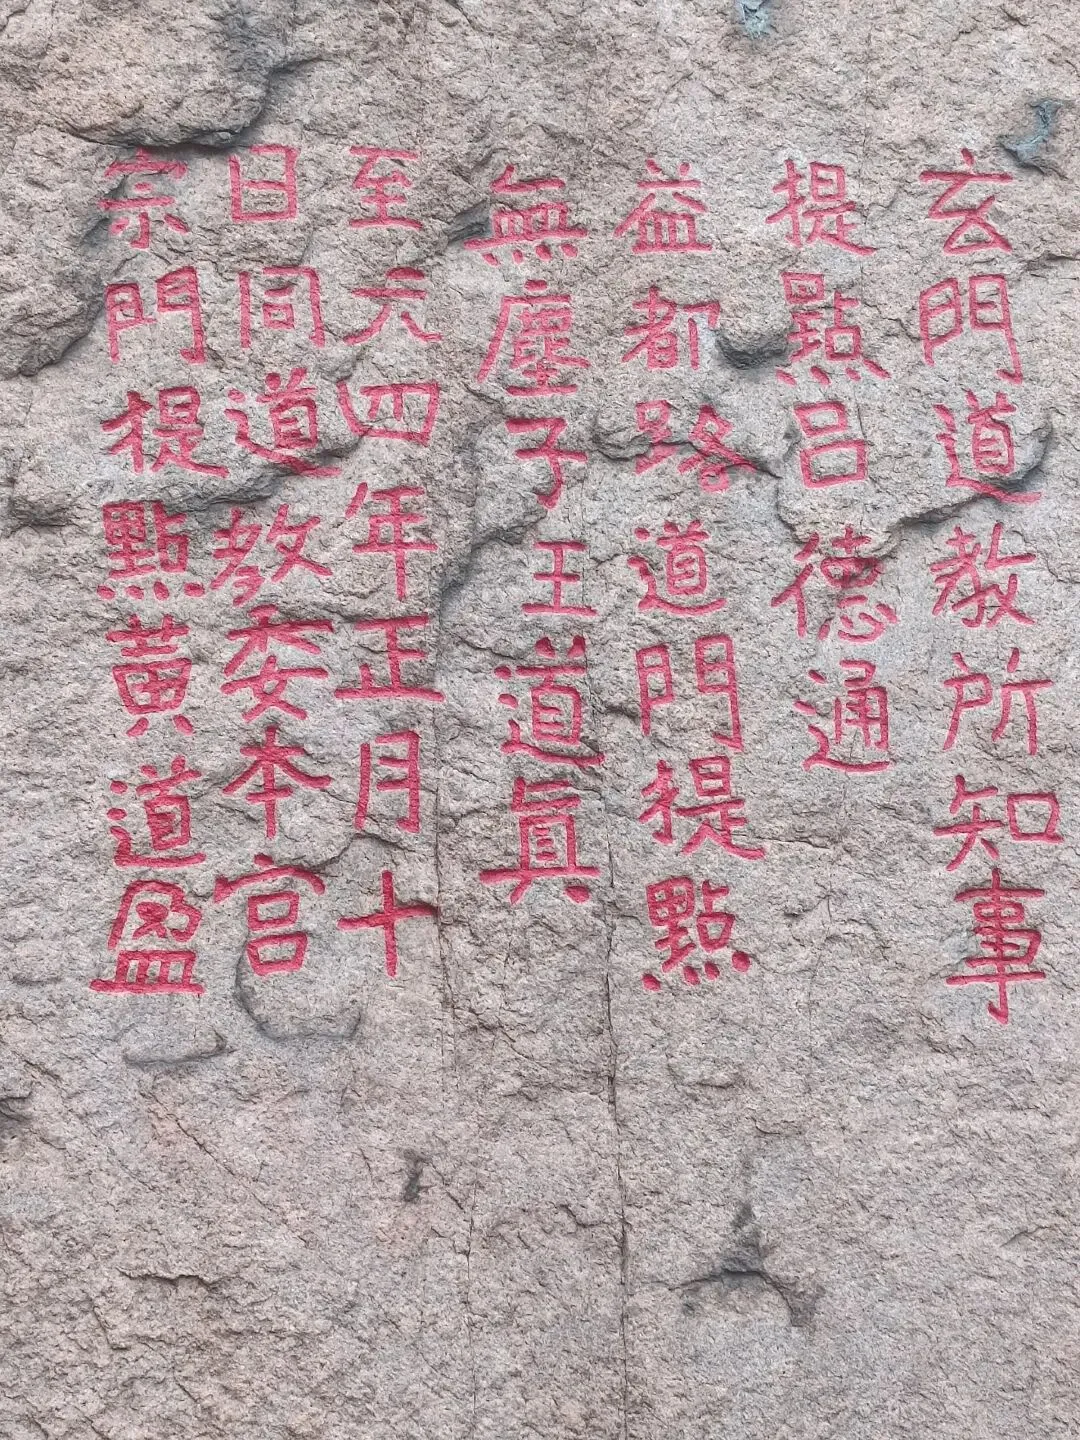 玄門道教所知事
提點吕德通
益都路道門提點
無塵子王道眞
至元四年正月十
日同道教委本宫
宗門提點黄道盈